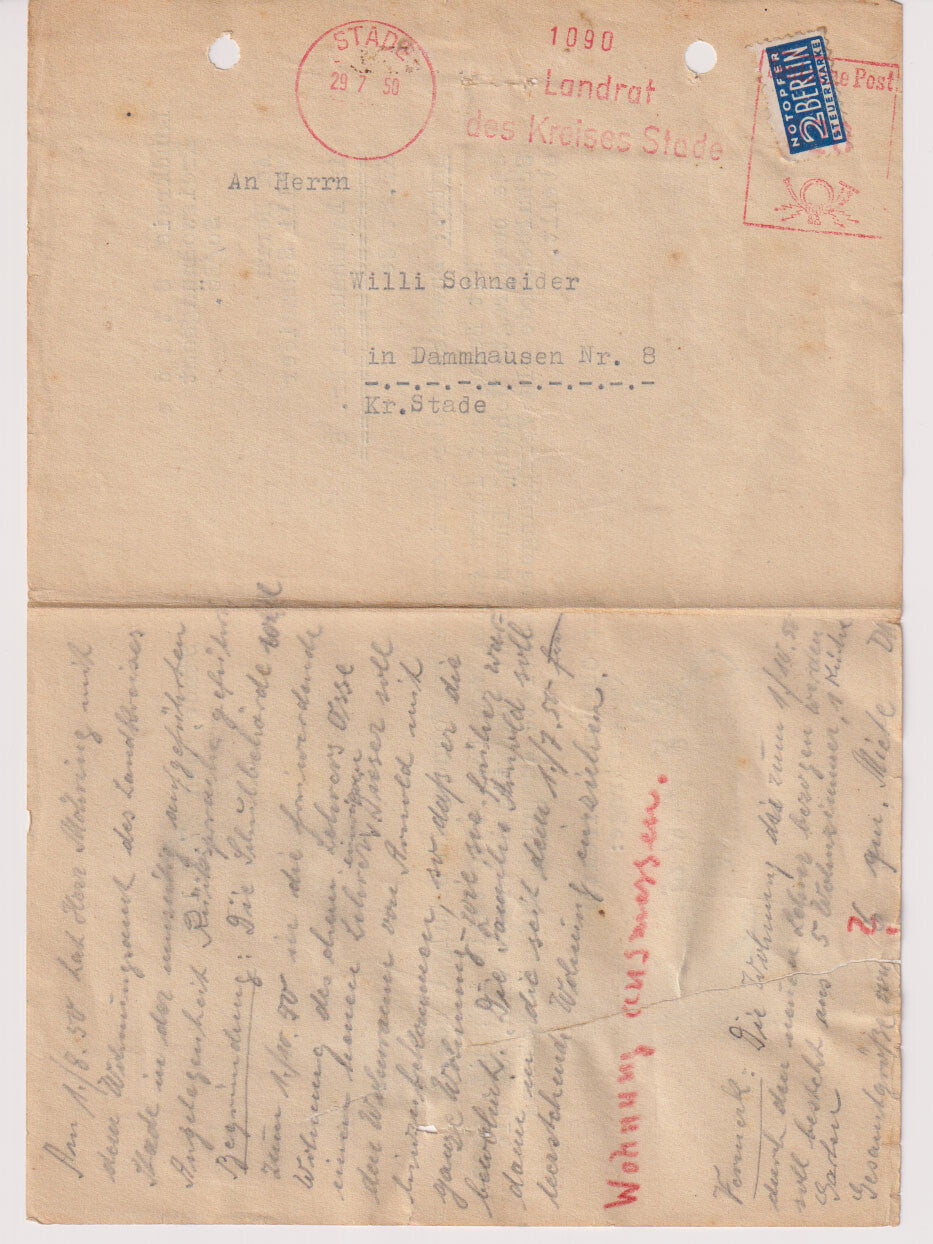 STADE
29 7 50
1090
Landrat
des Kreises Stade
NOTOPFER
2 BERLIN
STEUERMARKE
he Post
An Herrn
Willi Schneider
in Dammhausen Nr. 8
Kr.Stade
Am 1/8. 50 hat Herr Möhring mit
dem Wohnungsamt des Landkreises
Stade in der umseitig angeführten
Angelegenheit Rücksprache geführt
Begründung: Die Schulbehörde will
zum 1/10. 50 in die freiwerdende
Wohnung des ehem. Lehrers Asse
einen neuen Lehrer einweisen
den Wohnraum von Arnold mit
hinzubekommen, so daß er die
ganze Wohnung, wie sie früher war
bewohnt. Die Familie Arnold soll
dann in die seit dem 1/7. 50
leerstehende Wohnung einziehen.
Wohnung ausmessen.
Vermerk: Die Wohnung die zum 1/10. 50
durch den neuen Lehrer bezogen werden
soll besteht aus 5 Wohnzimmer, 1 Küche
Gesamtgröße ? qm. Miete DM